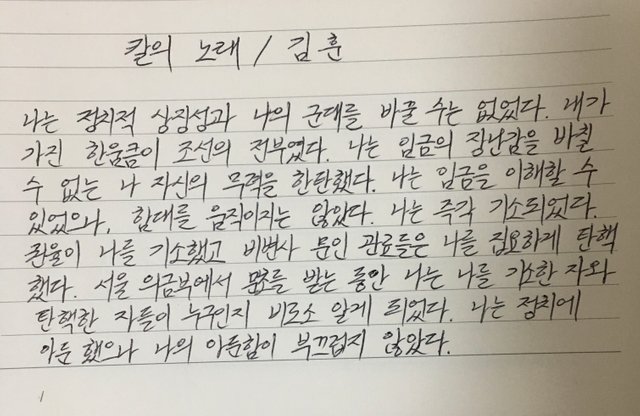 칼의 노래 / 김훈
나는 정치적 상징성과 나의 군대를 바꿀 수는 없었다. 내가
가진 한움큼이 조선의 전부였다. 나는 임금의 장난감을 바칠
수 없는 나 자신의 무력을 한탄했다. 나는 임금을 이해할 수
있었으나, 함대를 움직이지는 않았다. 나는 즉각 기소되었다.
권율이 나를 기소했고 비변사 문인 관료들은 나를 집요하게 탄핵
했다. 서울 의금부에서 문초를 받는 동안 나는 나를 기소한 자와
탄핵한 자들이 누구인지 비로소 알게 되었다. 나는 정치에
아둔했으나 나의 아둔함이 부끄럽지 않았다.